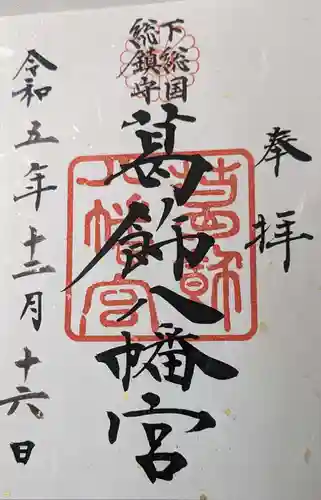 奉拝
下総国
総鎮守
葛飾八幡宮
葛飾
八幡宮
令和五年十二月十六日